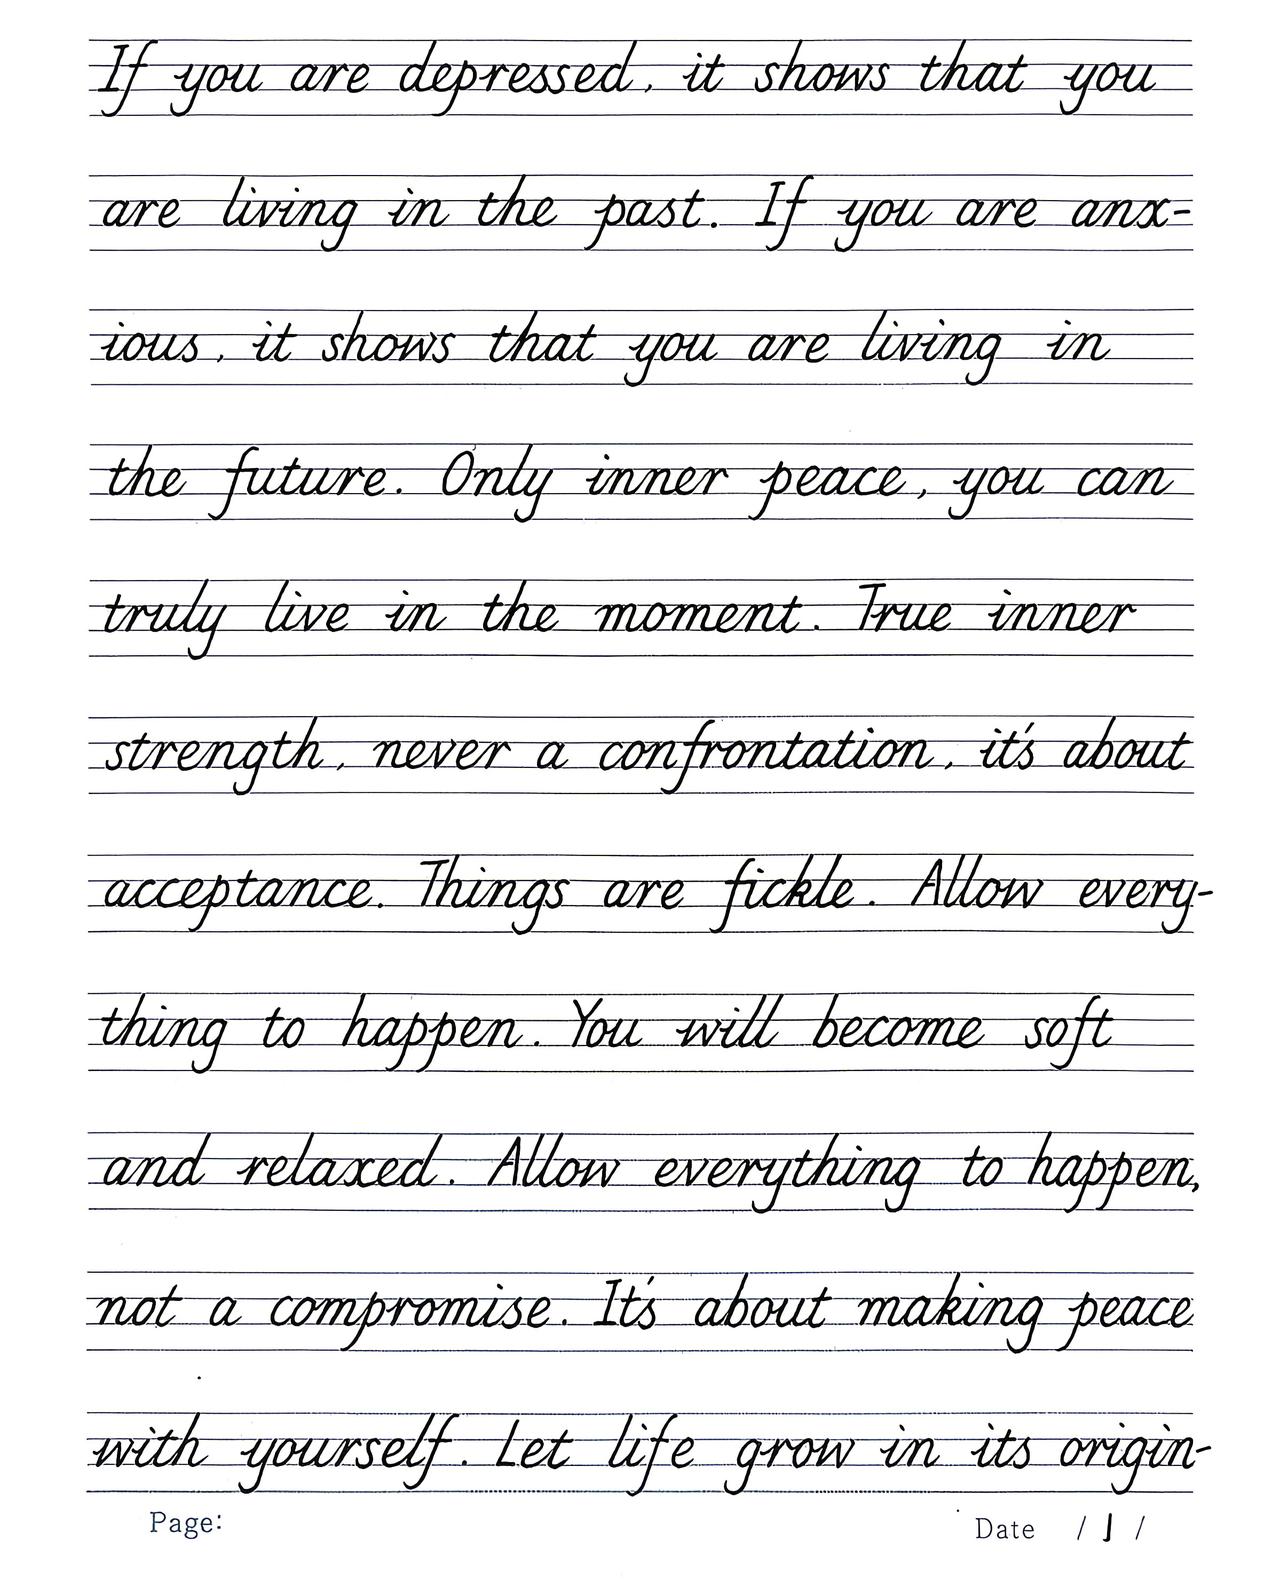 If you are depressed, it shows that you
are living in the past. If you are anx-
ious, it shows that you are living in
the future. Only inner peace, you can
truly live in the moment. True inner
strength, never a confrontation, it's about
acceptance. Things are fickle. Allow every-
thing to happen. You will become soft
and relaxed. Allow everything to happen,
not a compromise. It's about making peace
with yourself. Let life grow in its origin-
Page: Date / 1 /